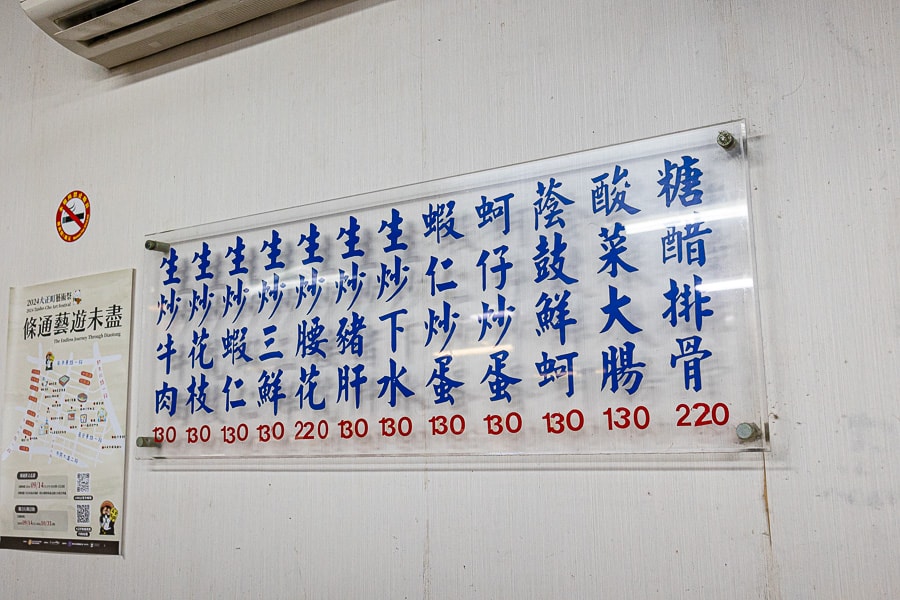 糖醋排骨
220
酸菜大腸
130
蔭鼓鮮蚵
130
蚵仔炒蛋
130
蝦仁炒蛋
130
生炒下水
130
生炒豬肝
130
生炒腰花
220
生炒三鮮
130
生炒蝦仁
130
生炒花枝
130
生炒牛肉
130
2024大正町藝術祭
條通藝遊未盡
The Endless Journey Through Diautong